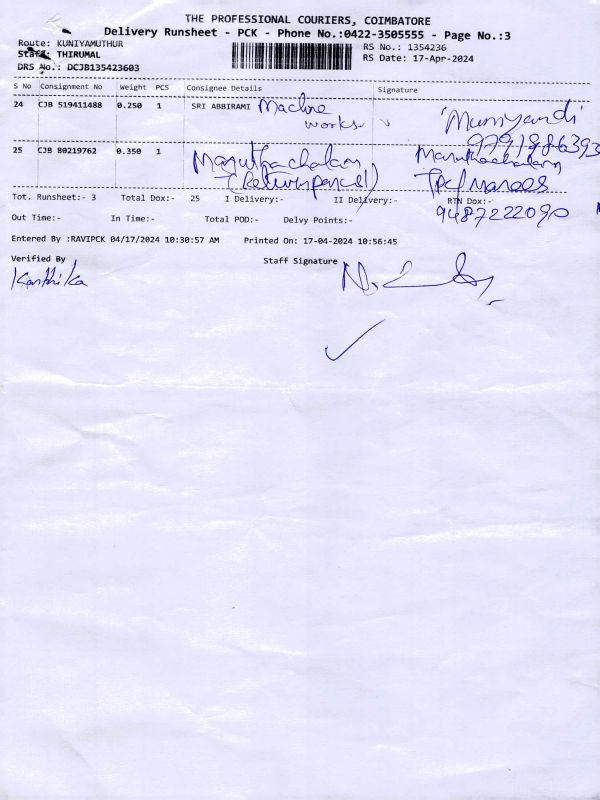 THE PROFESSIONAL COURIERS, COIMBATORE
Delivery Runsheet - PCK - Phone No.:0422-3505555 - Page No.:3
Route: KUNIYAMUTHUR
RS No.: 1354236
Staff: THIRUMAL
RS Date: 17-Apr-2024
DRS No.: DCJB135423603
S No Consignment No Weight PCS Consignee Details Signature
24 CJB 519411488 0.250 1 SRI ABBIRAMI Machine works Muniyandi
9791986393
25 CJB 80219762 0.350 1 Maruthachalam Maruthachalam
(Return parcel)
Tot. Runsheet:- 3 Total Dox:- 25 I Delivery:- II Delivery:- RTN Dox:-
9487222090
Out Time:- In Time:- Total POD:- Delvy Points:-
Entered By :RAVIPCK 04/17/2024 10:30:57 AM Printed On: 17-04-2024 10:56:45
Verified By Staff Signature
Karthika